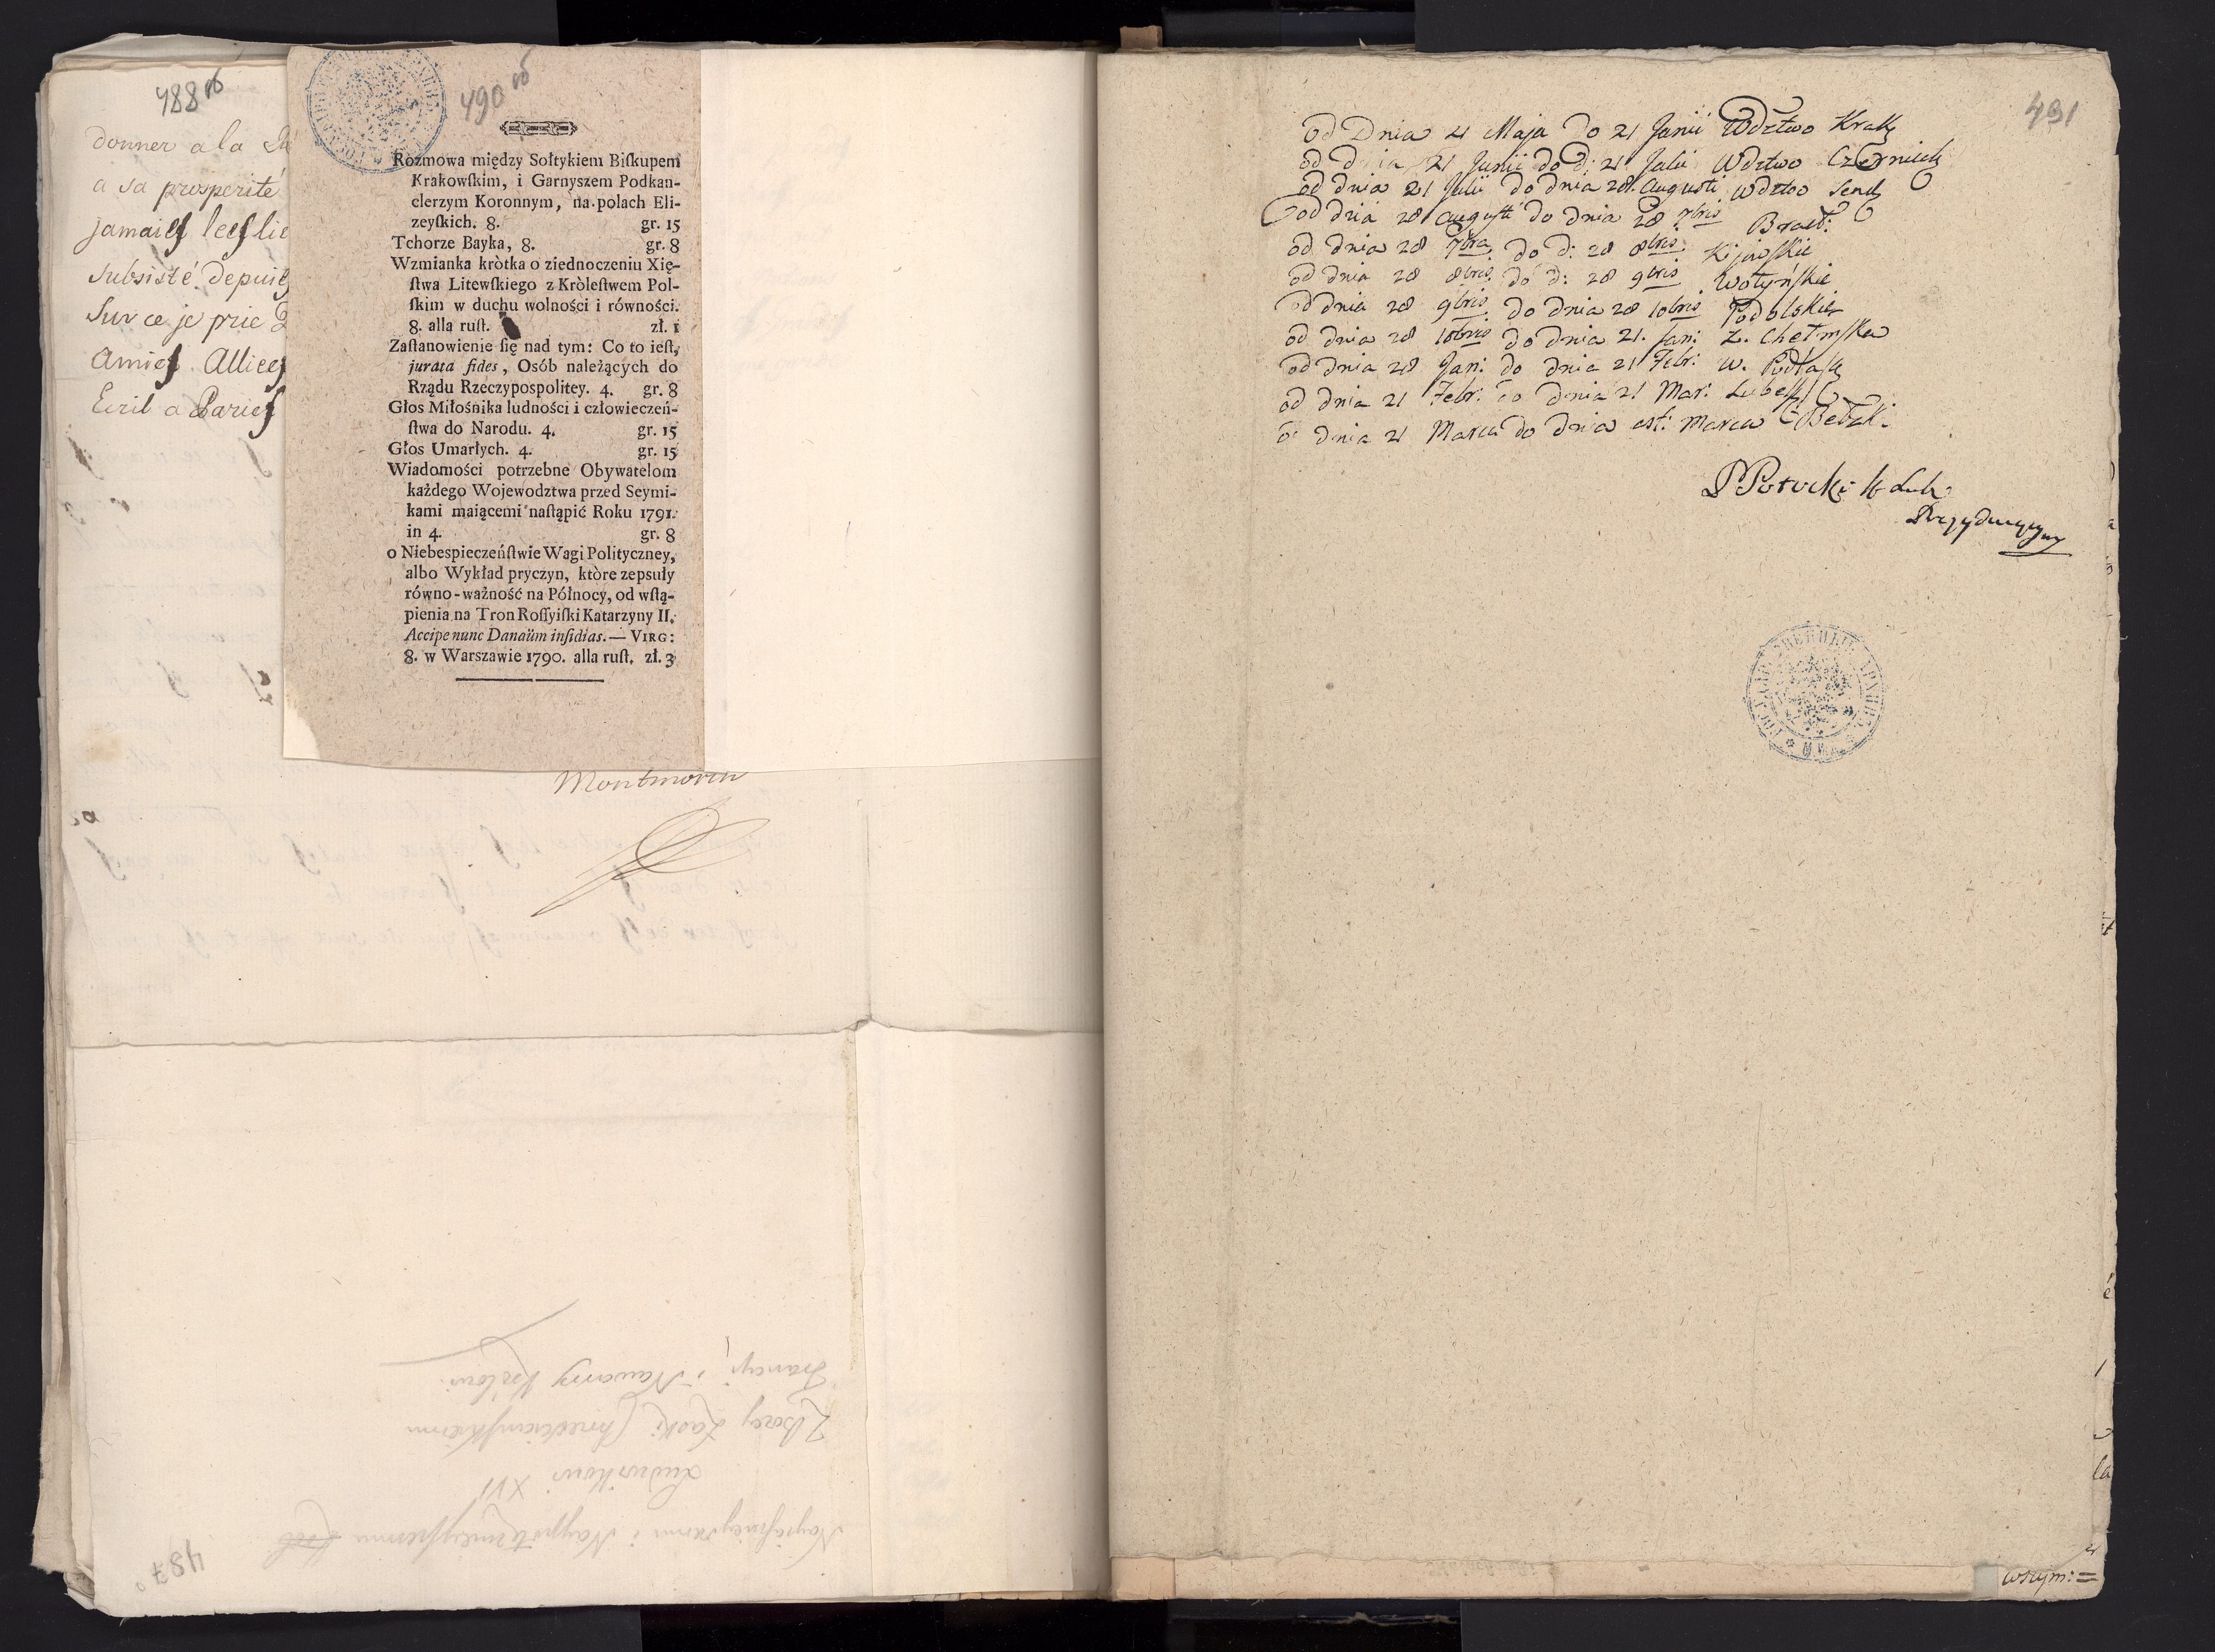 488 vo
donner a la
a sa prosperité
jamais les
Subsisté depuis
Sur ce je prie
Amies Alliees
Ecrit a Paries
490 vo
Rozmowa między Sołtykiem Biſkupem
Krakowſkim, i Garnyszem Podkan-
clerzym Koronnym, na polach Eli-
zeyſkich. 8. gr. 15
Tchorze Bayka, 8. gr. 8
Wzmianka kròtka o ziednoczeniu Xię-
ſtwa Litewſkiego z Kròleſtwem Pol-
ſkim w duchu wolności i równości.
8. alla ruſt. zł. 1
Zaſtanowienie ſię nad tym: Co to ieſt,
jurata fides, Osób należących do
Rządu Rzeczypospolitey. 4. gr. 8
Głos Miłośnika ludności i człowieczeń-
ſtwa do Narodu. 4. gr. 15
Głos Umarłych. 4. gr. 15
Wiadomości potrzebne Obywatelom
każdego Wojewodztwa przed Seymi-
kami maiącemi naſtąpić Roku 1791.
in 4. gr. 8
o Niebespieczeńſtwie Wagi Polityczney,
albo Wykład pryczyn, ktòre zepsuły
równo-ważność na Północy, od wſtą-
pienia na Tron Roſſyiſki Katarzyny II.
Accipe nunc Danaüm inſidias. — VIRG:
8. w Warszawie 1790. alla ruſt. zł. 3
Montmorin
Francyi i Nawarry Królowi
Z Bożey Łaski Chrześciańskiemu
Ludwikowi XVI
Nayiaśnieyszemu i Naypotężnieyszemu
487
491
od Dnia 21 Maja do 21 Junii Wdztwo Krak
od dnia 21 Junii do D: 21 Julii Wdztwo Czerniech
od dnia 21 Julii do dnia 28. Augusti Wdztwo Send
od dnia 28 Augusti do dnia 28 7bris Bracł:
od dnia 28 7bra do d: 28 8bris Kijowskie
od dnia 28 8bris do d: 28 9bris Wołyńskie
od dnia 28 9bris do dnia 28 10bris Podolskie
od dnia 28 10bris do dnia 21. Jan: Z. Chełmska
od dnia 28 Jan: do dnia 21 Febr: W. Podlask
od dnia 21 Febr: do dnia 21 Mar: Lubelsk
od dnia 21 Marca do dnia ost: Marca Bełzk:
P Potocki
Prezyduiący
wszym:=